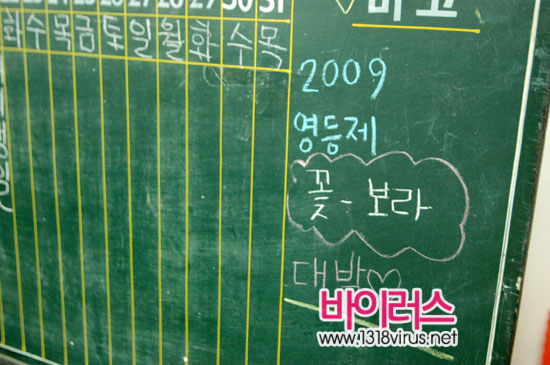 27 28 29 30 31
비고
화 수 목 금 토 일 월 화 수 목
2009
영등제
꽃-보라
대박♡
바이러스
www.1318virus.net